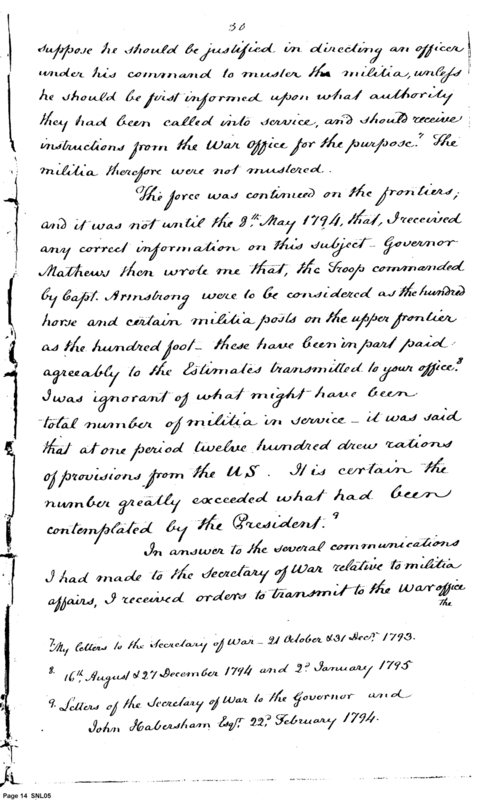 30
suppose he should be justified in directing an officer
under his command to muster the militia, unless
he should be first informed upon what authority
they had been called into service, and should receive
instructions from the War Office for the purpose." 7 The
militia therefore were not mustered.
The force was continued on the frontiers;
and it was not until the 8th. May 1794, that, I received
any correct information on this subject - Governor
Mathews then wrote me that, the Troop commanded
by Capt. Armstrong were to be considered as the hundred
horse and certain militia posts on the upper frontier
as the hundred foot - these have been in part paid
agreeably to the Estimates transmitted to your office. 8
I was ignorant of what might have been
total number of militia in service - it was said
that at one period twelve hundred drew rations
of provisions from the U S. It is certain the
number greatly exceeded what had been
contemplated by the President. 9
In answer to the several communications
I had made to the Secretary of War relative to militia
affairs, I received orders to transmit to the War office
the
7. My letters to the Secretary of War - 21 October & 31 Decr. 1793.
8. 16th. August & 27 December 1794 and 2d. January 1795
9. Letters of the Secretary of War to the Governor and
John Habersham Esqr. 22d. February 1794.
Page 14 SNL05